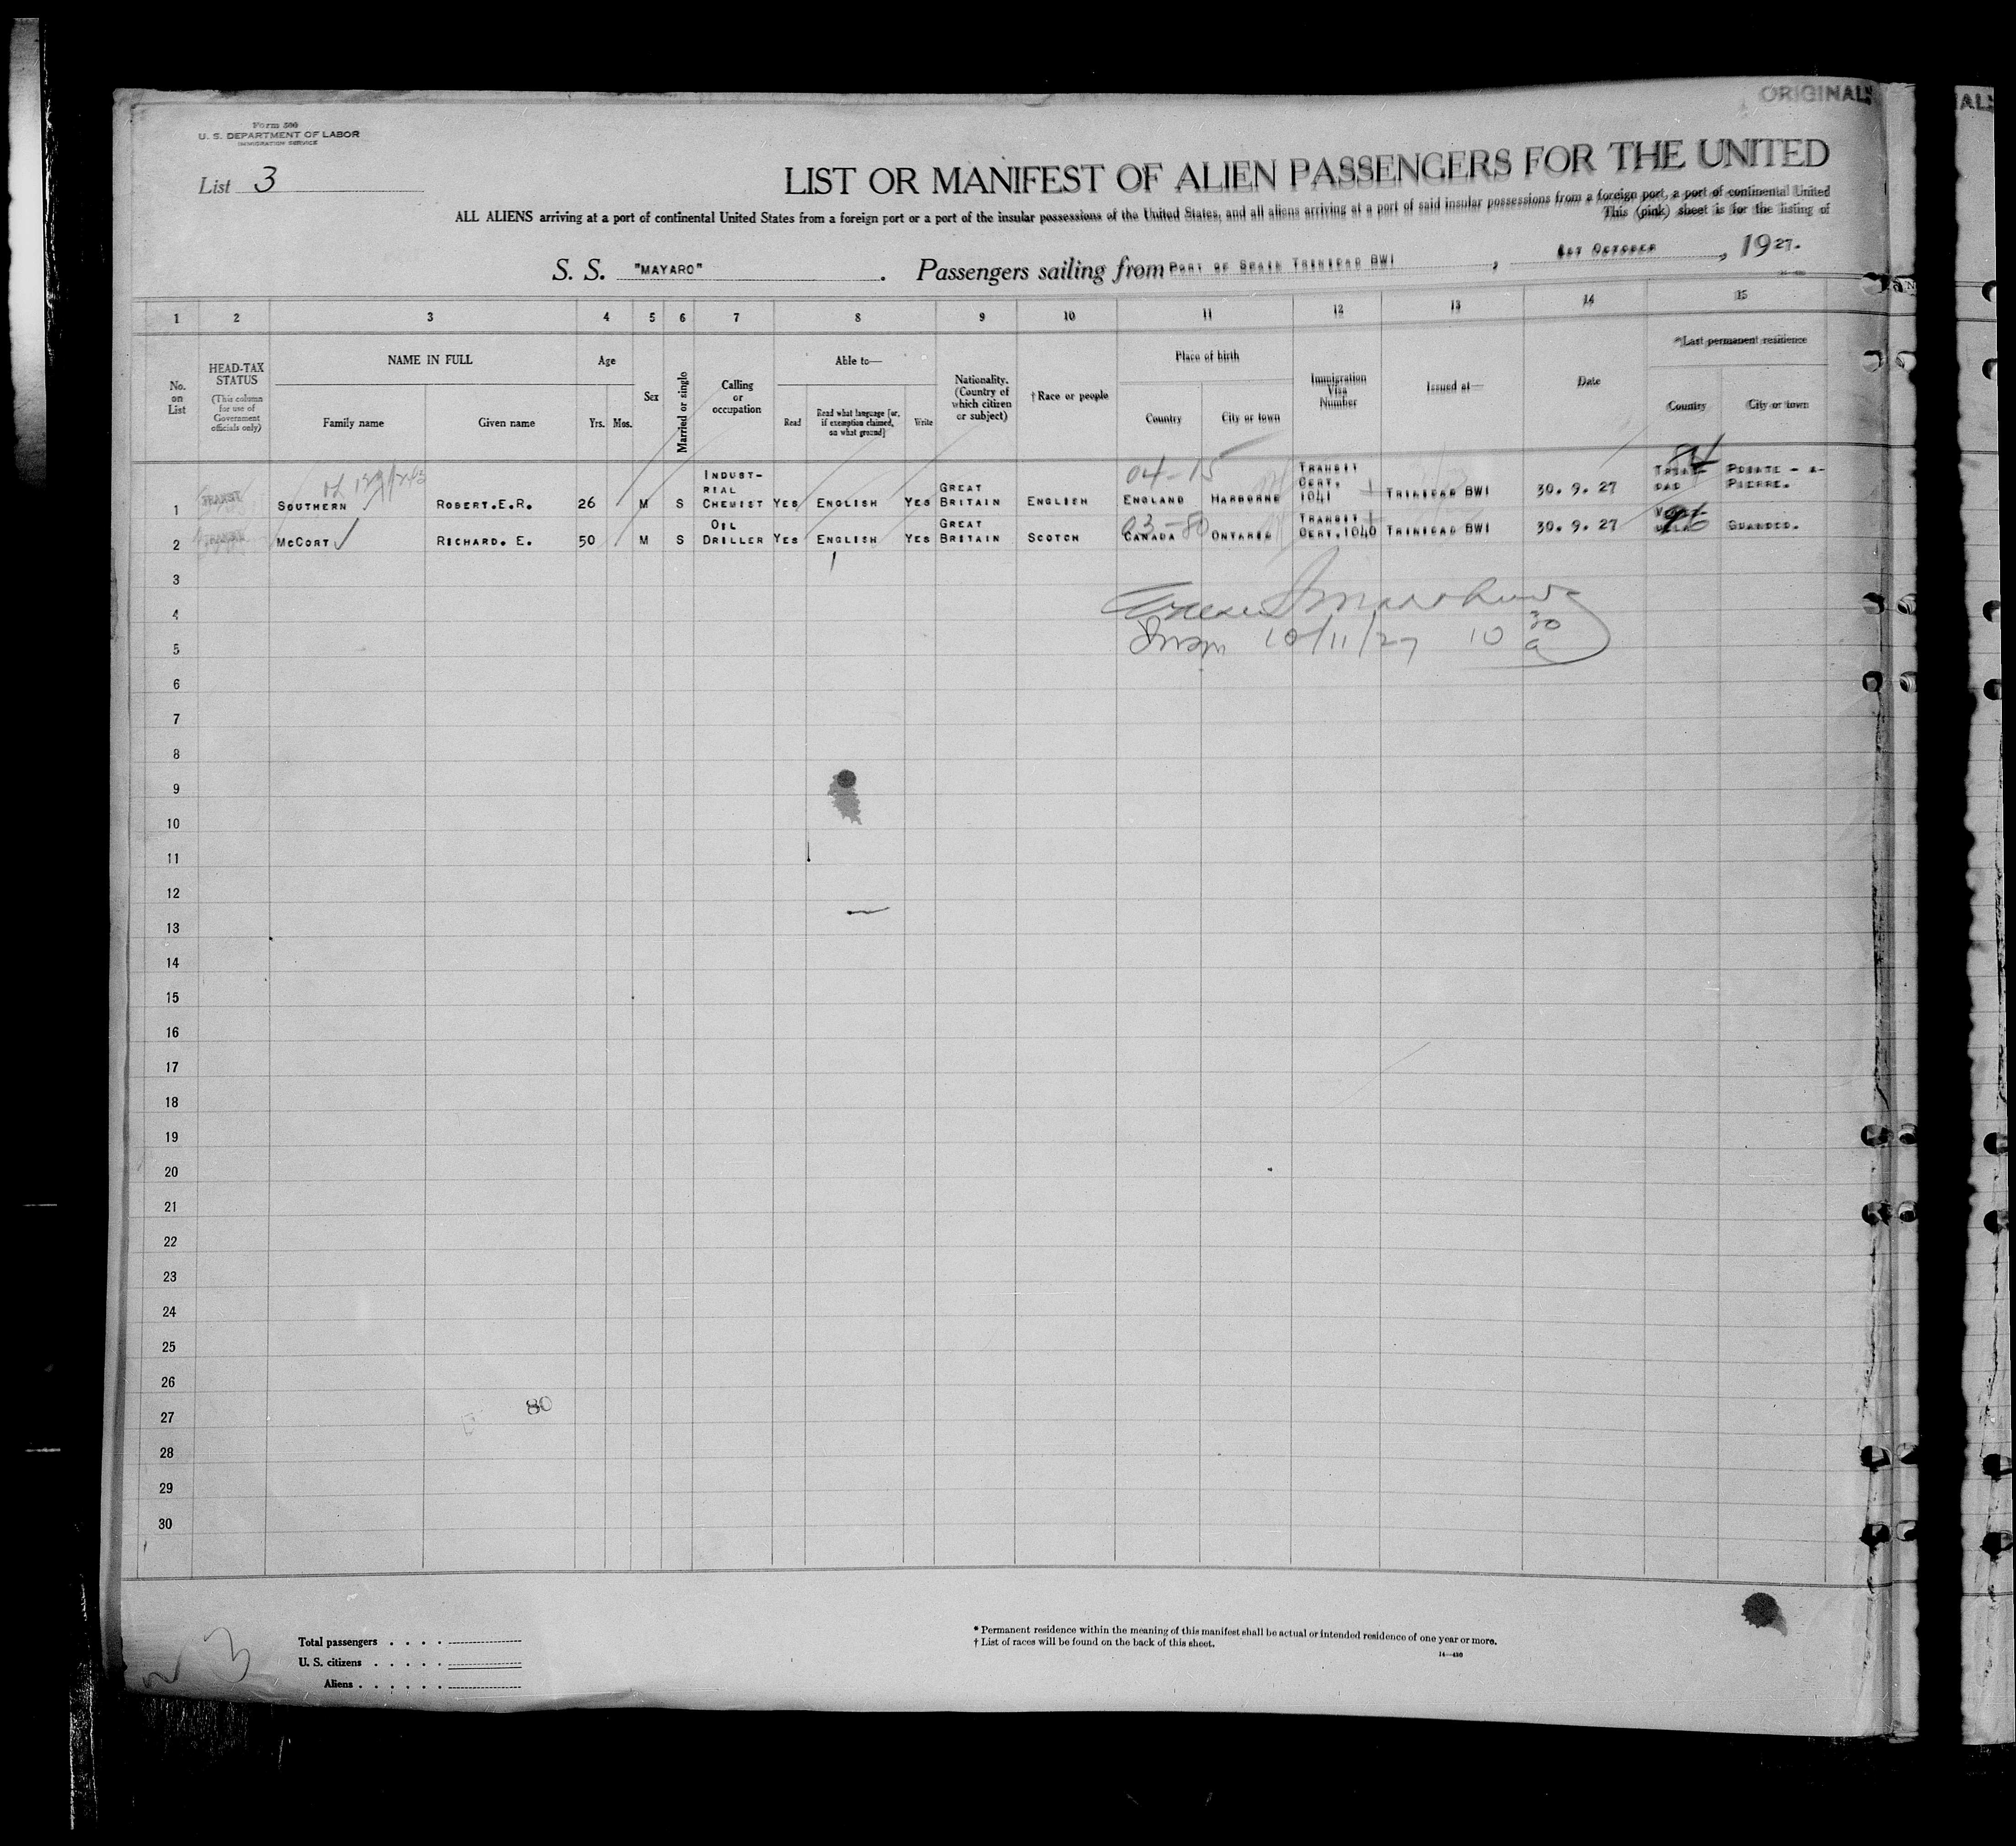 ORIGINAL
AL
Form 500
U. S. DEPARTMENT OF LABOR
IMMIGRATION SERVICE
List 3
LIST OR MANIFEST OF ALIEN PASSENGERS FOR THE UNITED
ALL ALIENS arriving at a port of continental United States from a foreign port or a port of the insular possessions of the United States, and all aliens arriving at a port of said insular possessions from a foreign port, a port of continental United
This (pink) sheet is for the listing of
S. S. "MAYARO". Passengers sailing from PORT OF SPAIN TRINIDAD BWI, 1ST OCTOBER, 1927.
1 2 3 4 5 6 7 8 9 10 11 12 13 14 15
No. on List
HEAD-TAX STATUS
(This column for use of Government officials only)
NAME IN FULL
Family name Given name
Age
Yrs. Mos.
Sex
Married or single
Calling or occupation
Able to—
Read
Read what language [or, if exemption claimed, on what ground]
Write
Nationality. (Country of which citizen or subject)
†Race or people
Place of birth
Country City or town
Immigration Visa Number
Issued at—
Date
*Last permanent residence
Country City or town
04-15
1 SOUTHERN ROBERT.E.R. 26 M S INDUST-RIAL CHEMIST YES ENGLISH YES GREAT BRITAIN ENGLISH ENGLAND HARBORNE TRANSIT CERT. 1041 TRINIDAD BWI 30. 9. 27 TRINI-DAD POINTE - A-PIERRE.
03-80
2 McCORT RICHARD. E. 50 M S OIL DRILLER YES ENGLISH YES GREAT BRITAIN SCOTCH CANADA ONTARIO TRANSIT CERT.1040 TRINIDAD BWI 30. 9. 27 GUANOCO.
3
4
5
10/11/27 10 30 a
6
7
8
9
10
11
12
13
14
15
16
17
18
19
20
21
22
23
24
25
26
27 80
28
29
30
3
Total passengers . . . .
U. S. citizens . . . . .
Aliens . . . . . .
* Permanent residence within the meaning of this manifest shall be actual or intended residence of one year or more.
† List of races will be found on the back of this sheet.
14—430